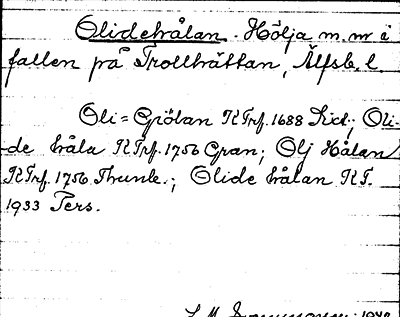 Olidehålan. Hölja m.m. i
fallen på Trollhättan, Älfsb. l.
Oli=Gjölan KTrf. 1688 Kick; Oli-
de håla KTrf. 1756 Gran; Olj Hålan
KTrf. 1756 Thunb.; Olide hålan KT.
1933 Pers.